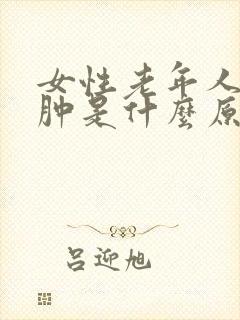 女性老年人
肿是什麼原
吕迎旭